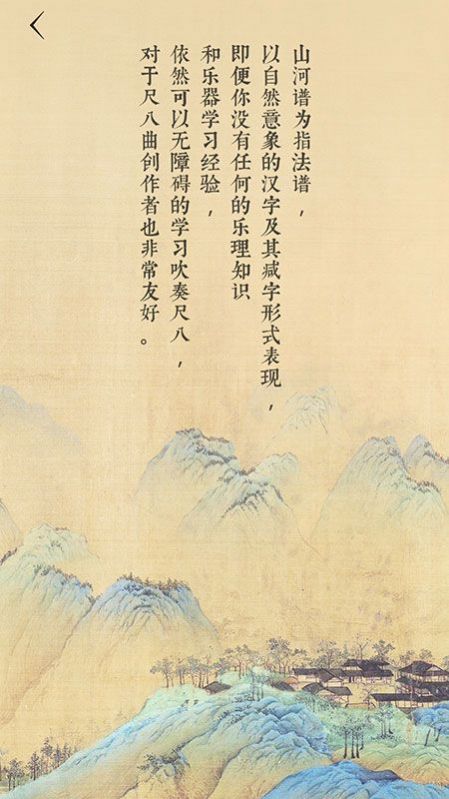 山河谱为指法谱，
以自然意象的汉字及其减字形式表现，
即便你没有任何的乐理知识
和乐器学习经验，
依然可以无障碍的学习吹奏尺八，
对于尺八曲创作者也非常友好。